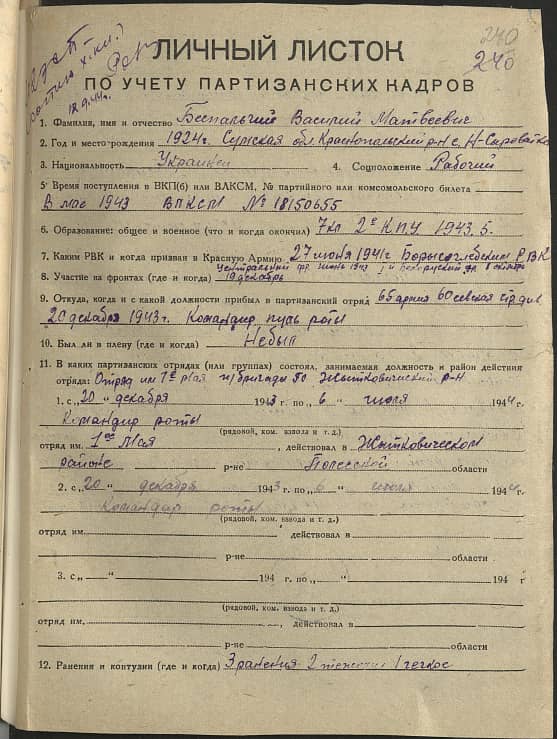 240
240
12.9.44г.
ЛИЧНЫЙ ЛИСТОК
ПО УЧЕТУ ПАРТИЗАНСКИХ КАДРОВ
1. Фамилия, имя и отчество Беспальчий Василий Матвеевич
2. Год и место рождения 1924г. Сумская обл. Краснопольский р-н с. Н-Сыроватка
3. Национальность Украинец 4. Соцположение Рабочий
5. Время поступления в ВКП(б) или ВЛКСМ, № партийного или комсомольского билета
В мае 1943 ВЛКСМ № 18150655
6. Образование: общее и военное (что и когда окончил) 7кл 2е КПУ 1943.5.
7. Каким РВК и когда призван в Красную Армию 27 июня 1941г Борисоглебским РВК
Центральный фр. июнь 1943 и Белорусский фр. в октябре
8. Участие на фронтах (где и когда) 19 декабрь
9. Откуда, когда и с какой должности прибыл в партизанский отряд 65 армия 60 севская стр див
20 декабря 1943г. Командир пуль роты
10. Был ли в плену (где и когда) Небыл
11. В каких партизанских отрядах (или группах) состоял, занимаемая должность и район действия
отряда: Отряд им 1е мая п/бригады 50 Жытковичский р-н
1. с „20 " декабря 1943 г. по „ 6 " июля 1944 г.
Командир роты
(рядовой, ком. взвода и т. д.)
отряд им. 1ое Мая , действовал в Жытковическом
районе р-не Полесской области
2. с „20 " декабря 1943 г. по „6 " июля 1944 г.
Командир роты
(рядовой, ком. взвода и т. д.)
отряд им. , действовал в
р-не области
3. с „ " 194 г. по „ " 194 г
(рядовой, ком. взвода и т. д.)
отряд им. , действовал в
р-не области
12. Ранения и контузии (где и когда) 3 ранения 2 тяжелых 1 легкое